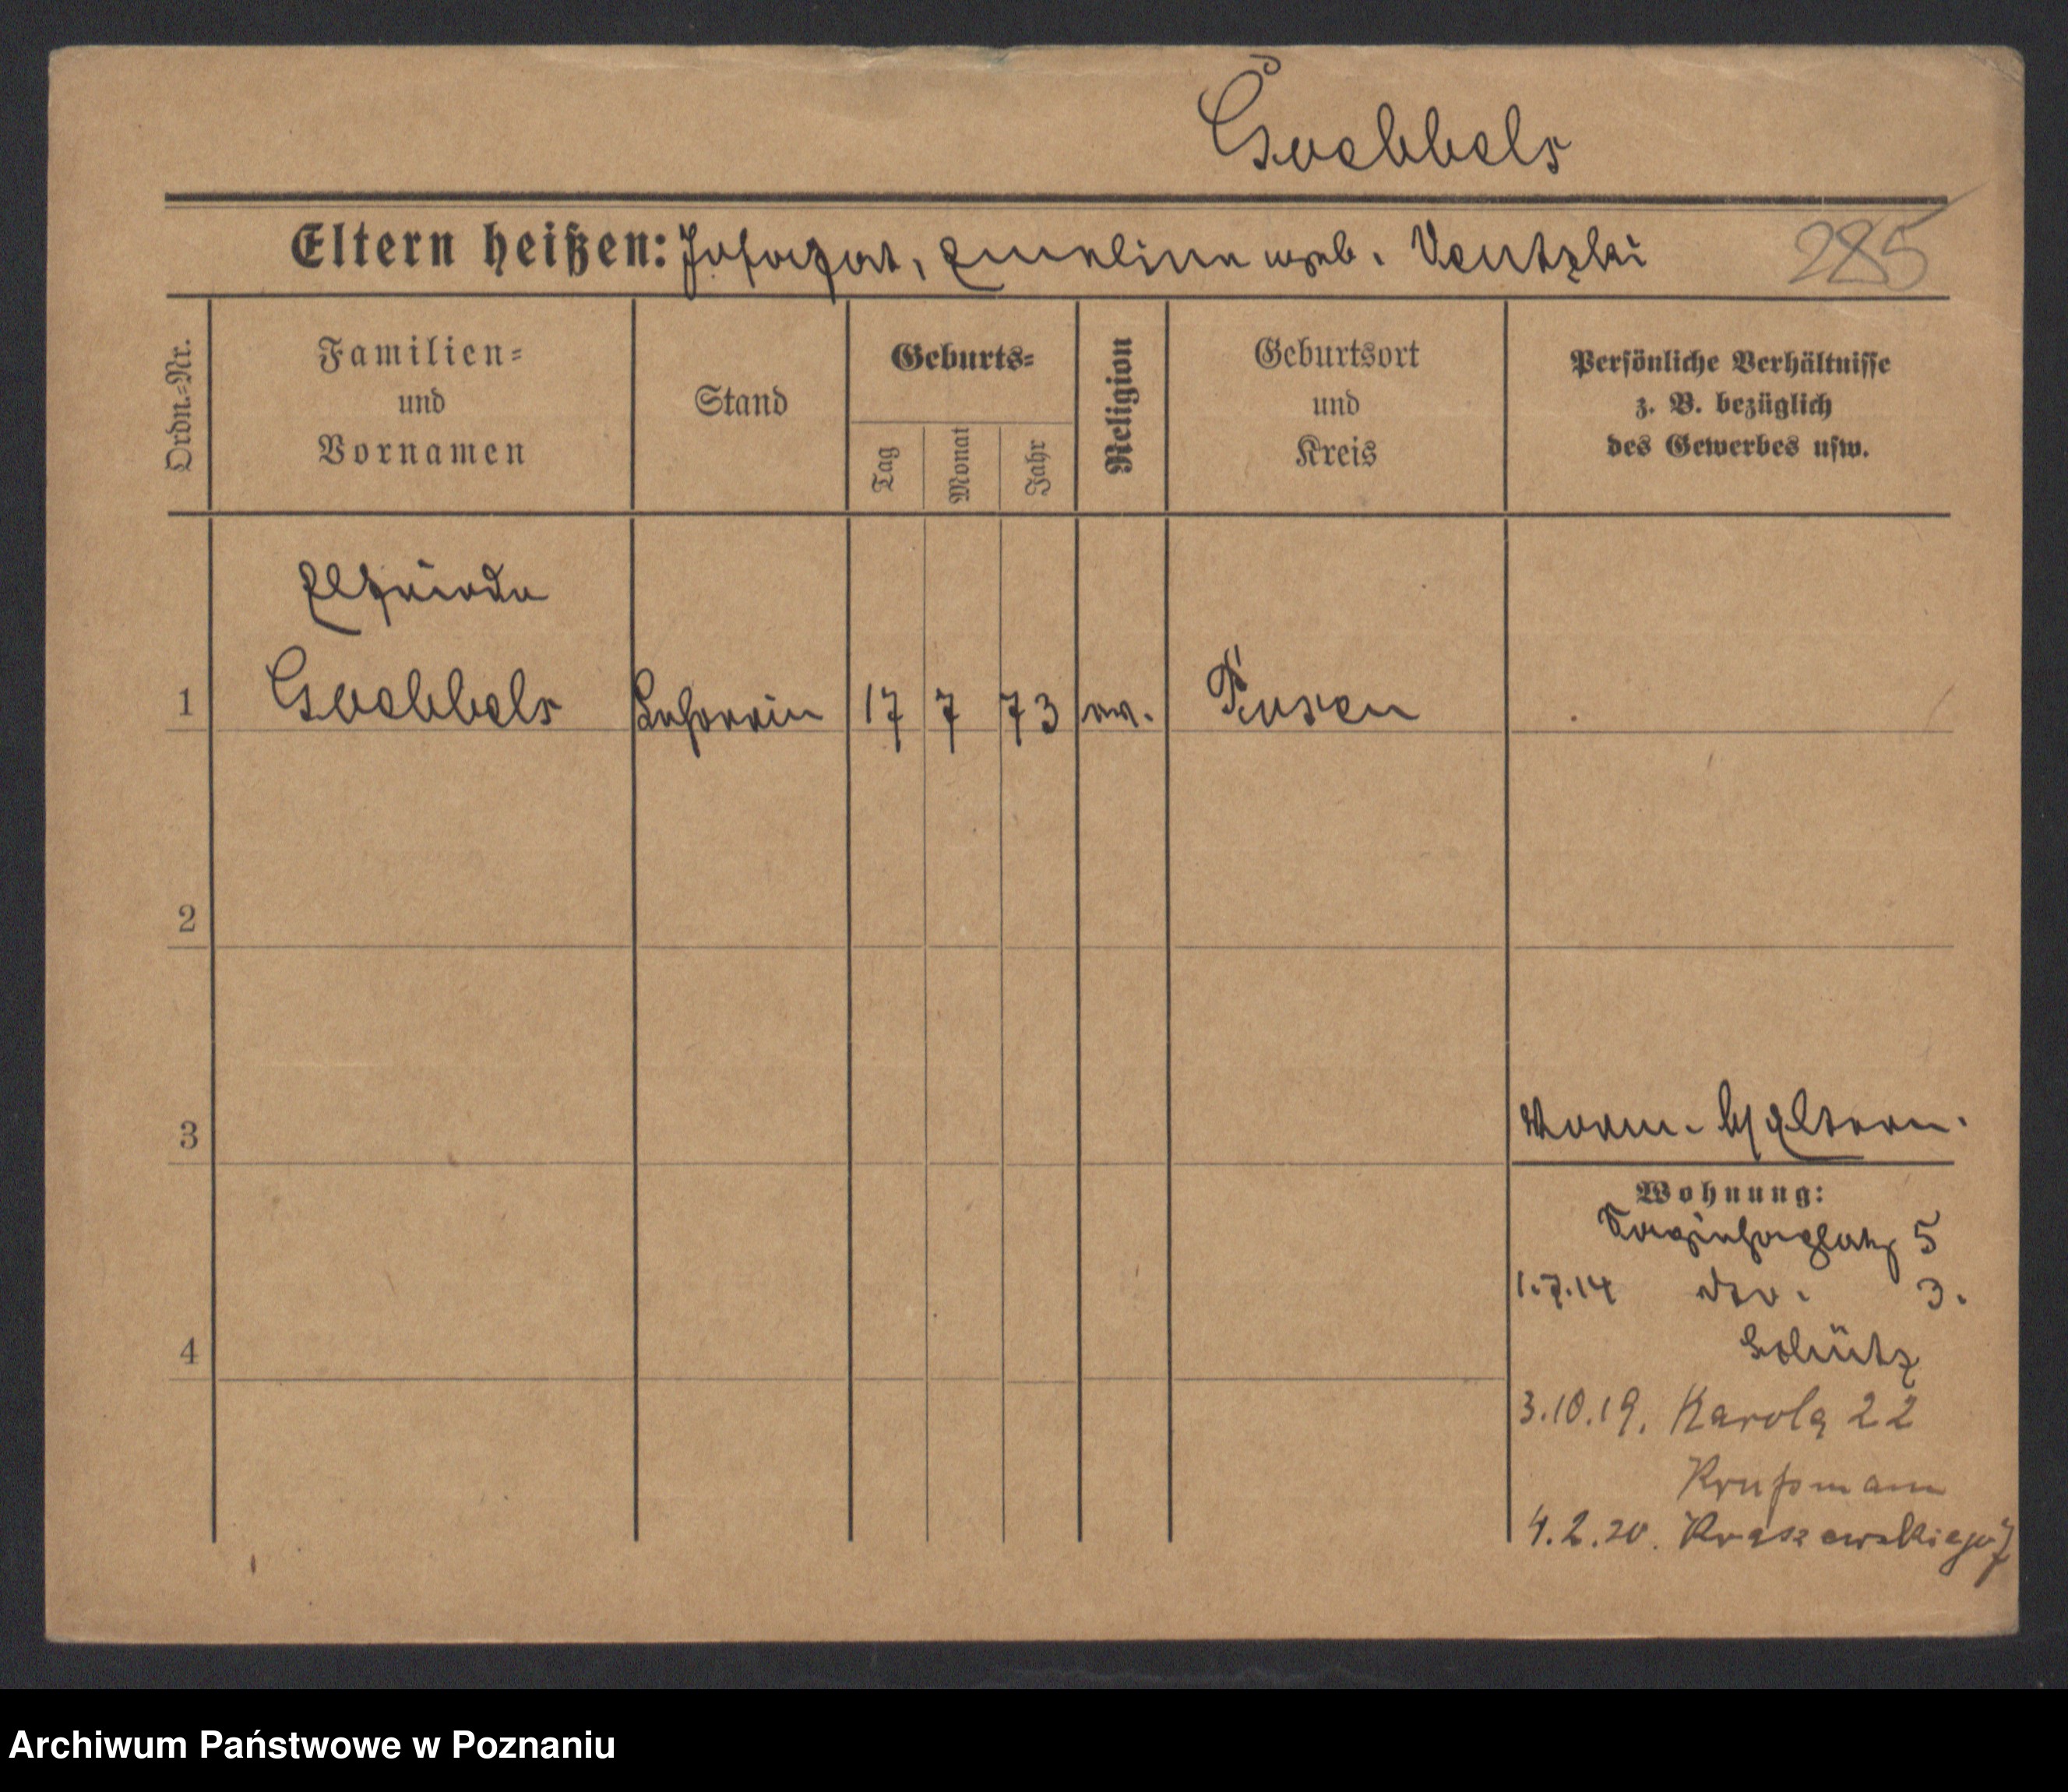 Goebbels
Eltern heißen: Josaphat, Emeline geb. Ventzki
285
Ordn.=Nr.
Familien=
und
Vornamen
Stand
Geburts=
Tag
Monat
Jahr
Religion
Geburtsort
und
Kreis
Persönliche Verhältnisse
z. B. bezüglich
des Gewerbes usw.
Elfriede
1 Goebbels Lehrerin 17 7 73 ev. Posen
2
3
b/ Eltern.
Wohnung:
5
1.7.14 dto. 3.
Schütz
4
3.10.19. Karola 22
Krußmann
4.2.20. Kraszewskiego 7
Archiwum Państwowe w Poznaniu